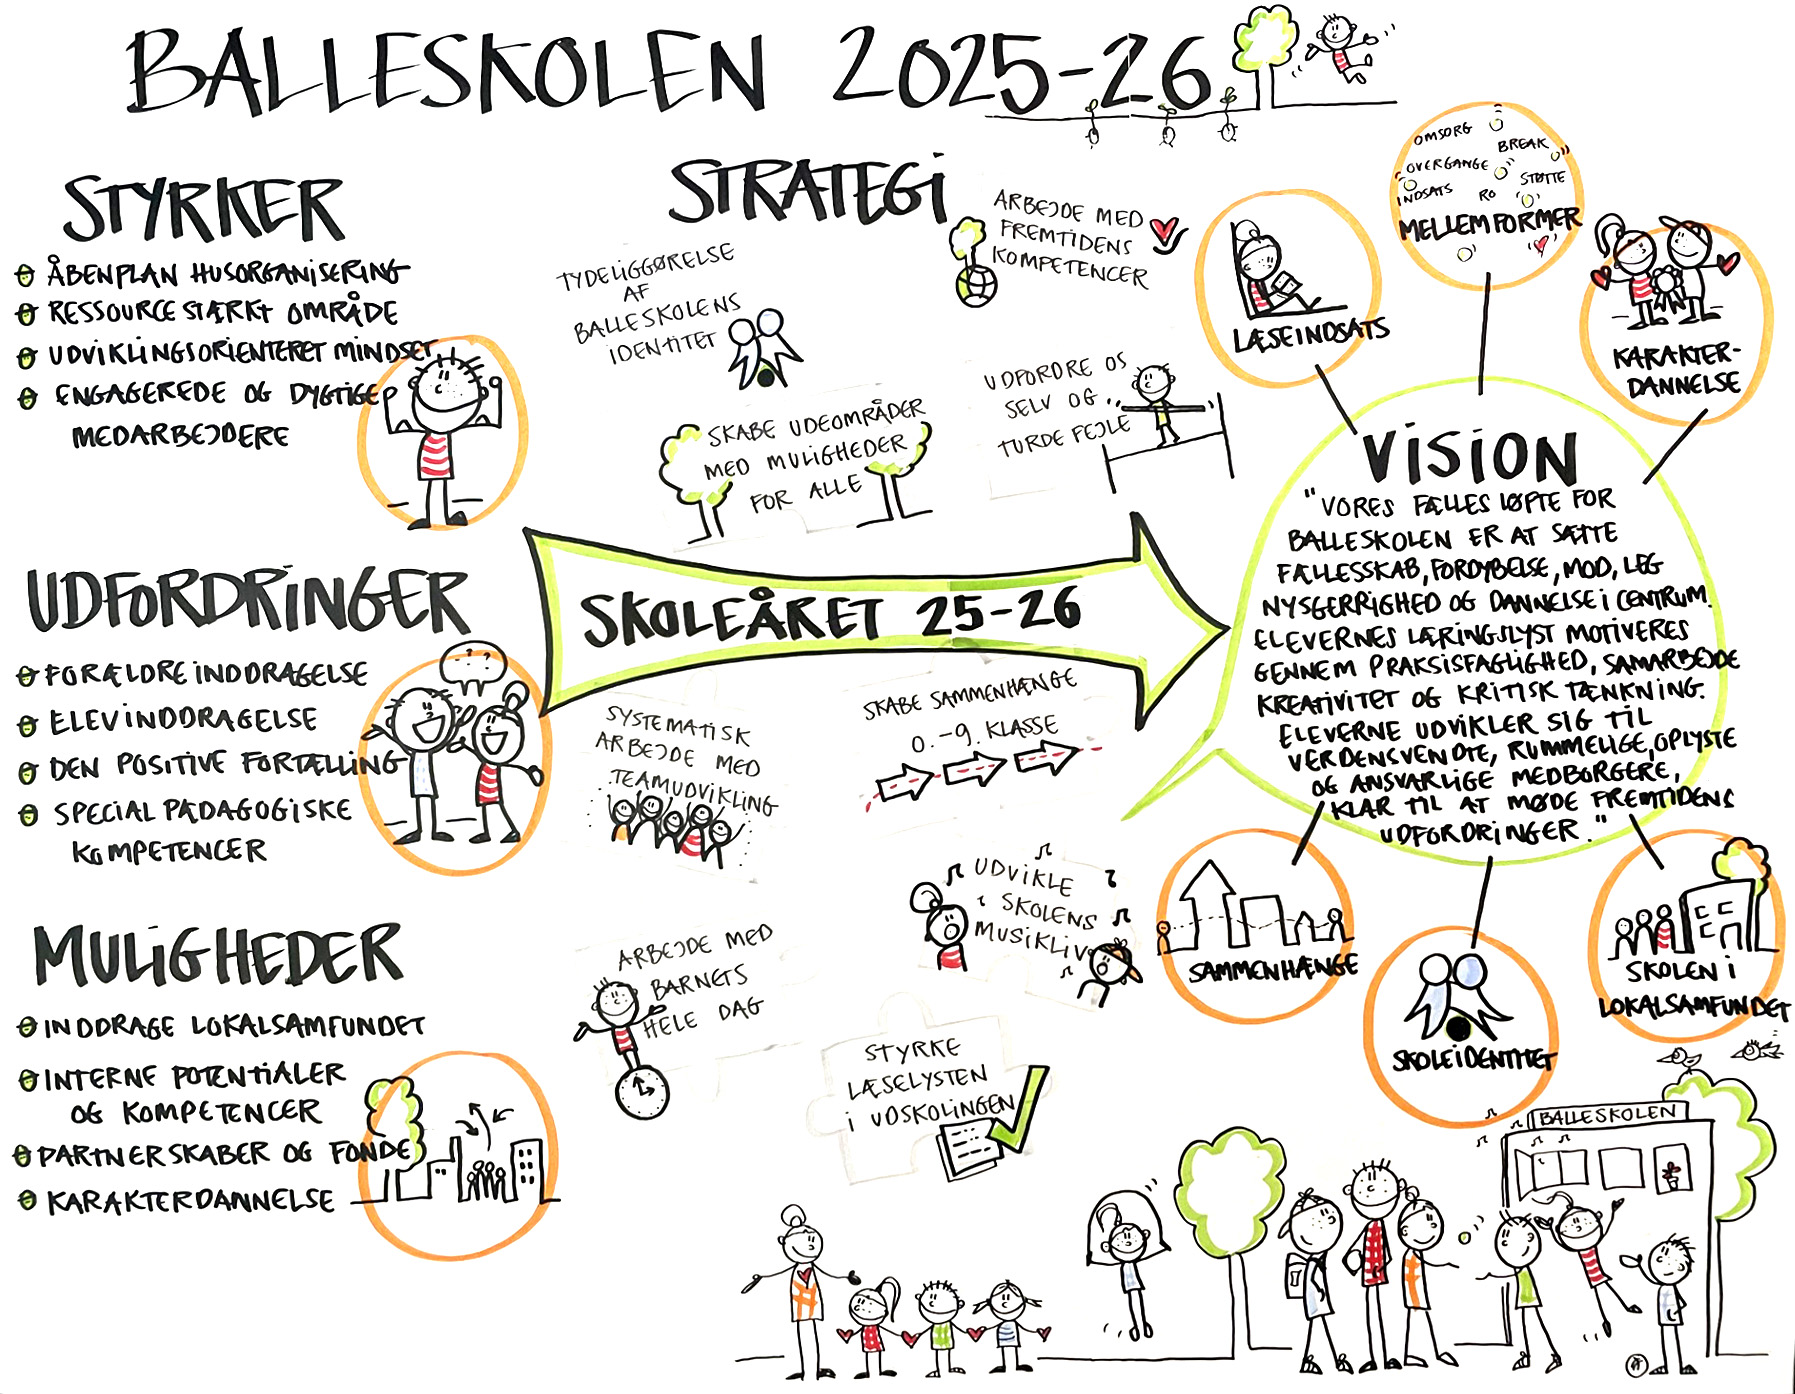 BALLESKOLEN 2025-26
STYRKER
ÅBENPLAN HUSORGANISERING
RESSOURCESTÆRKT OMRÅDE
UDVIKLINGSORIENTERET MINDSET
ENGAGEREDE OG DYGTIGE
MEDARBEJDERE
UDFORDRINGER
FORÆLDREINDDRAGELSE
ELEVINDDRAGELSE
DEN POSITIVE FORTÆLLING
SPECIALPÆDAGOGISKE
KOMPETENCER
MULIGHEDER
INDDRAGE LOKALSAMFUNDET
INTERNE POTENTIALER
OG KOMPETENCER
PARTNERSKABER OG FONDE
KARAKTERDANNELSE
STRATEGI
TYDELIGGØRELSE
AF
BALLESKOLENS
IDENTITET
ARBEJDE MED
FREMTIDENS
KOMPETENCER
SKABE UDEOMRÅDER
MED MULIGHEDER
FOR ALLE
UDFORDRE OS
SELV OG
TURDE FEJLE
SKOLEÅRET 25-26
SYSTEMATISK
ARBEJDE MED
TEAMUDVIKLING
SKABE SAMMENHÆNGE
0.-9. KLASSE
UDVIKLE
SKOLENS
MUSIKLIV
ARBEJDE MED
BARNETS
HELE DAG
STYRKE
LÆSELYSTEN
I UDSKOLINGEN
LÆSEINDSATS
OMSORG
BREAK
OVERGANGE
STØTTE
INDSATS
RO
MELLEMFORMER
KARAKTER-
DANNELSE
VISION
"VORES FÆLLES LØFTE FOR
BALLESKOLEN ER AT SÆTTE
FÆLLESSKAB, FORDYBELSE, MOD, LEG
NYSGERRIGHED OG DANNELSE I CENTRUM.
ELEVERNES LÆRINGSLYST MOTIVERES
GENNEM PRAKSISFAGLIGHED, SAMARBEJDE
KREATIVITET OG KRITISK TÆNKNING.
ELEVERNE UDVIKLER SIG TIL
VERDENSVENDTE, RUMMELIGE, OPLYSTE
OG ANSVARLIGE MEDBORGERE,
KLAR TIL AT MØDE FREMTIDENS
UDFORDRINGER."
SAMMENHÆNGE
SKOLEIDENTITET
SKOLEN I
LOKALSAMFUNDET
BALLESKOLEN